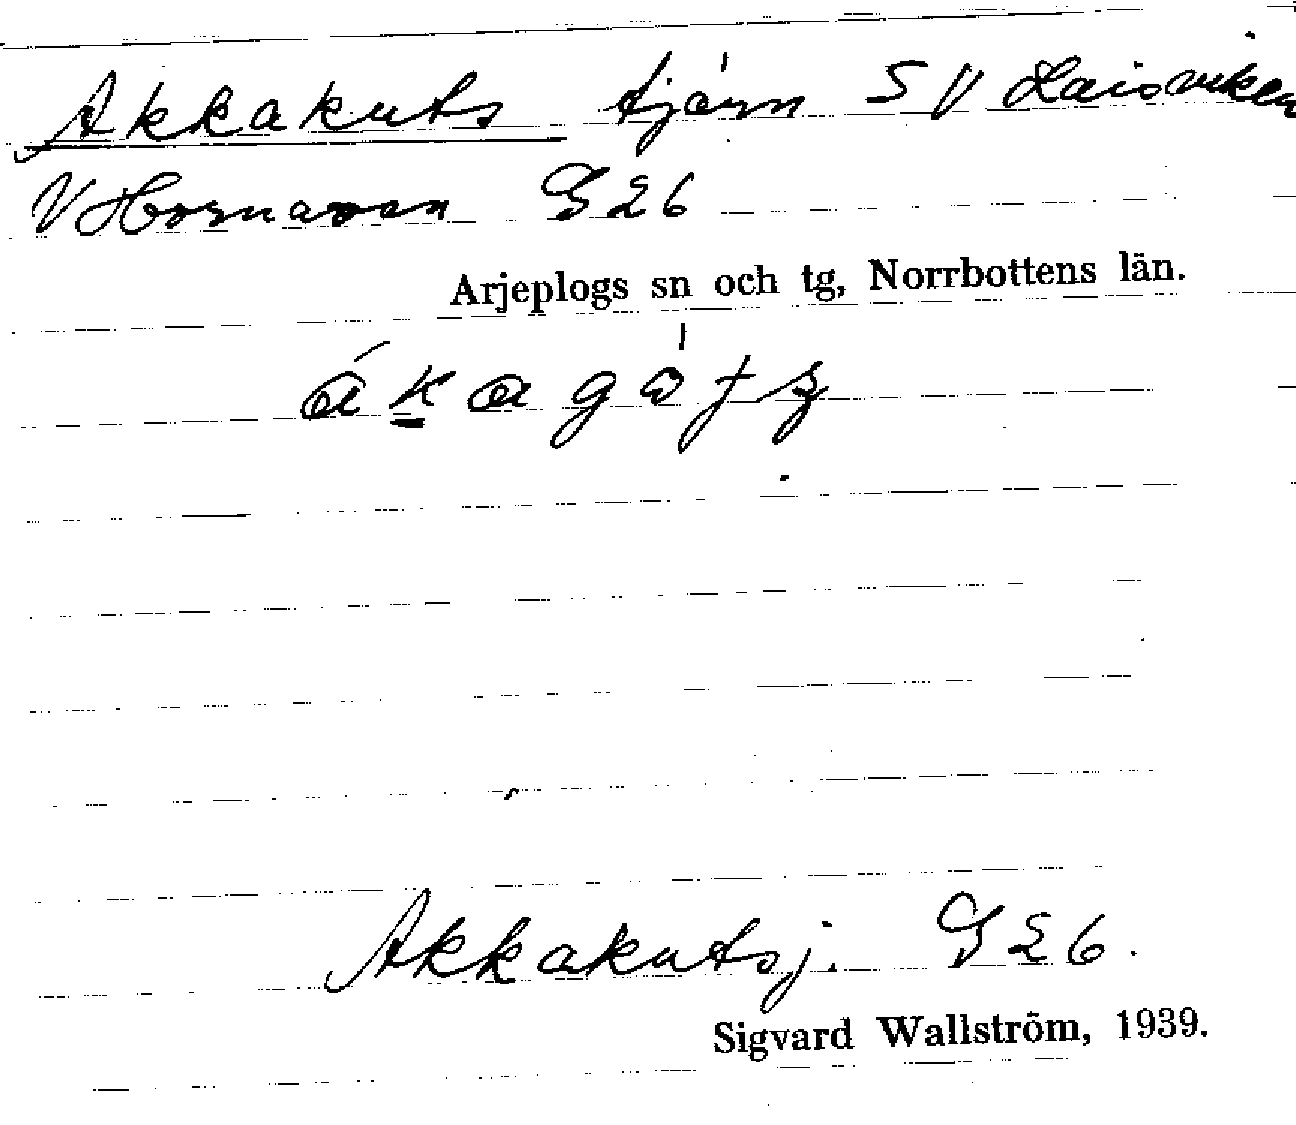 Akkakuts tjärn SV Laisviken
V Hornavan G26
Arjeplogs sn och tg, Norrbottens län.
Akkakutsj. G26.
Sigvard Wallström, 1939.